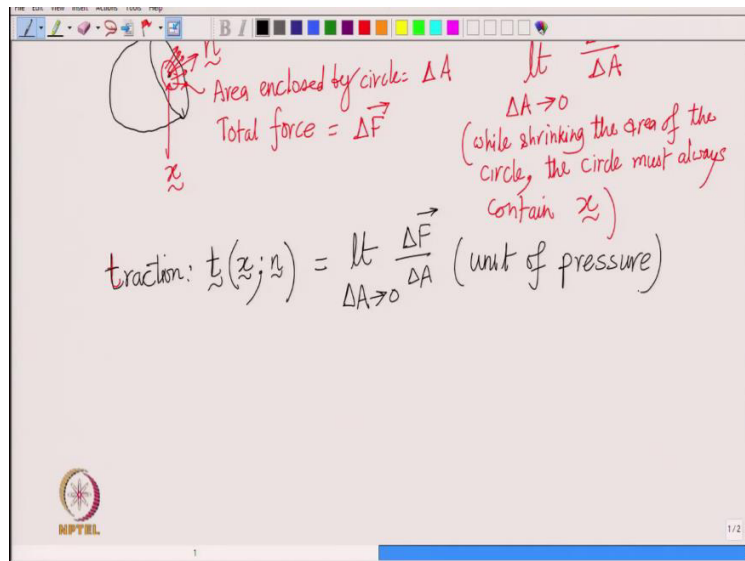 File Edit View Insert Actions Tools Help
B I
n
Area enclosed by circle = ΔA
Total force = ΔF⃗
x
lt
ΔA→0
ΔA
(while shrinking the area of the
circle, the circle must always
contain x)
traction: t(x; n) = lt ΔF⃗/ΔA (unit of pressure)
ΔA→0
NPTEL
1/2
1